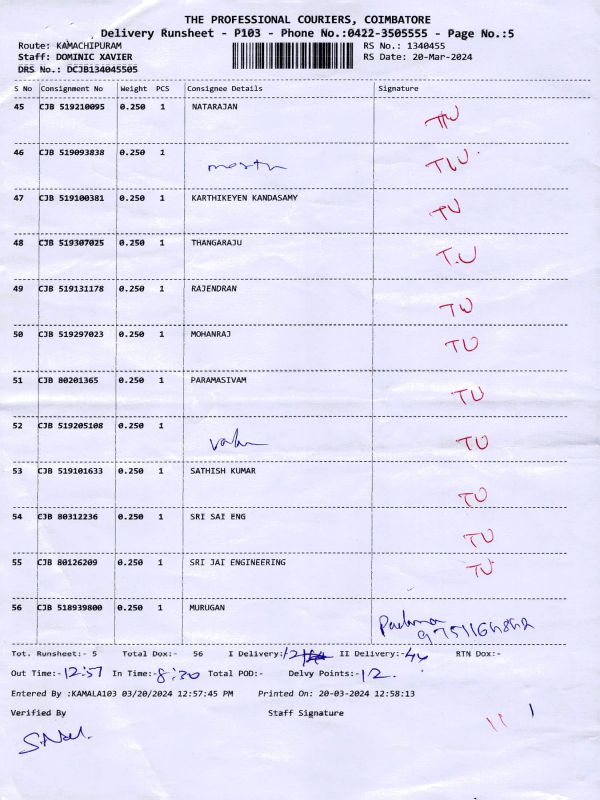 THE PROFESSIONAL COURIERS, COIMBATORE
Delivery Runsheet - P103 - Phone No.:0422-3505555 - Page No.:5
Route: KAMACHIPURAM RS No.: 1340455
Staff: DOMINIC XAVIER RS Date: 20-Mar-2024
DRS No.: DCJB134045505
S No Consignment No Weight PCS Consignee Details Signature
45 CJB 519210095 0.250 1 NATARAJAN TU
46 CJB 519093838 0.250 1 TU
47 CJB 519100381 0.250 1 KARTHIKEYEN KANDASAMY TU
48 CJB 519307025 0.250 1 THANGARAJU T.U
49 CJB 519131178 0.250 1 RAJENDRAN TU
50 CJB 519297023 0.250 1 MOHANRAJ TU
51 CJB 80201365 0.250 1 PARAMASIVAM TU
52 CJB 519205108 0.250 1 TU
53 CJB 519101633 0.250 1 SATHISH KUMAR TU
54 CJB 80312236 0.250 1 SRI SAI ENG TU
55 CJB 80126209 0.250 1 SRI JAI ENGINEERING TU
56 CJB 518939800 0.250 1 MURUGAN Padma
Tot. Runsheet:- 5 Total Dox:- 56 I Delivery:- 12 II Delivery:- 44 RTN Dox:-
Out Time:- 12:57 In Time:- 8:30 Total POD:- Delvy Points:- 12.
Entered By :KAMALA103 03/20/2024 12:57:45 PM Printed On: 20-03-2024 12:58:13
Verified By Staff Signature